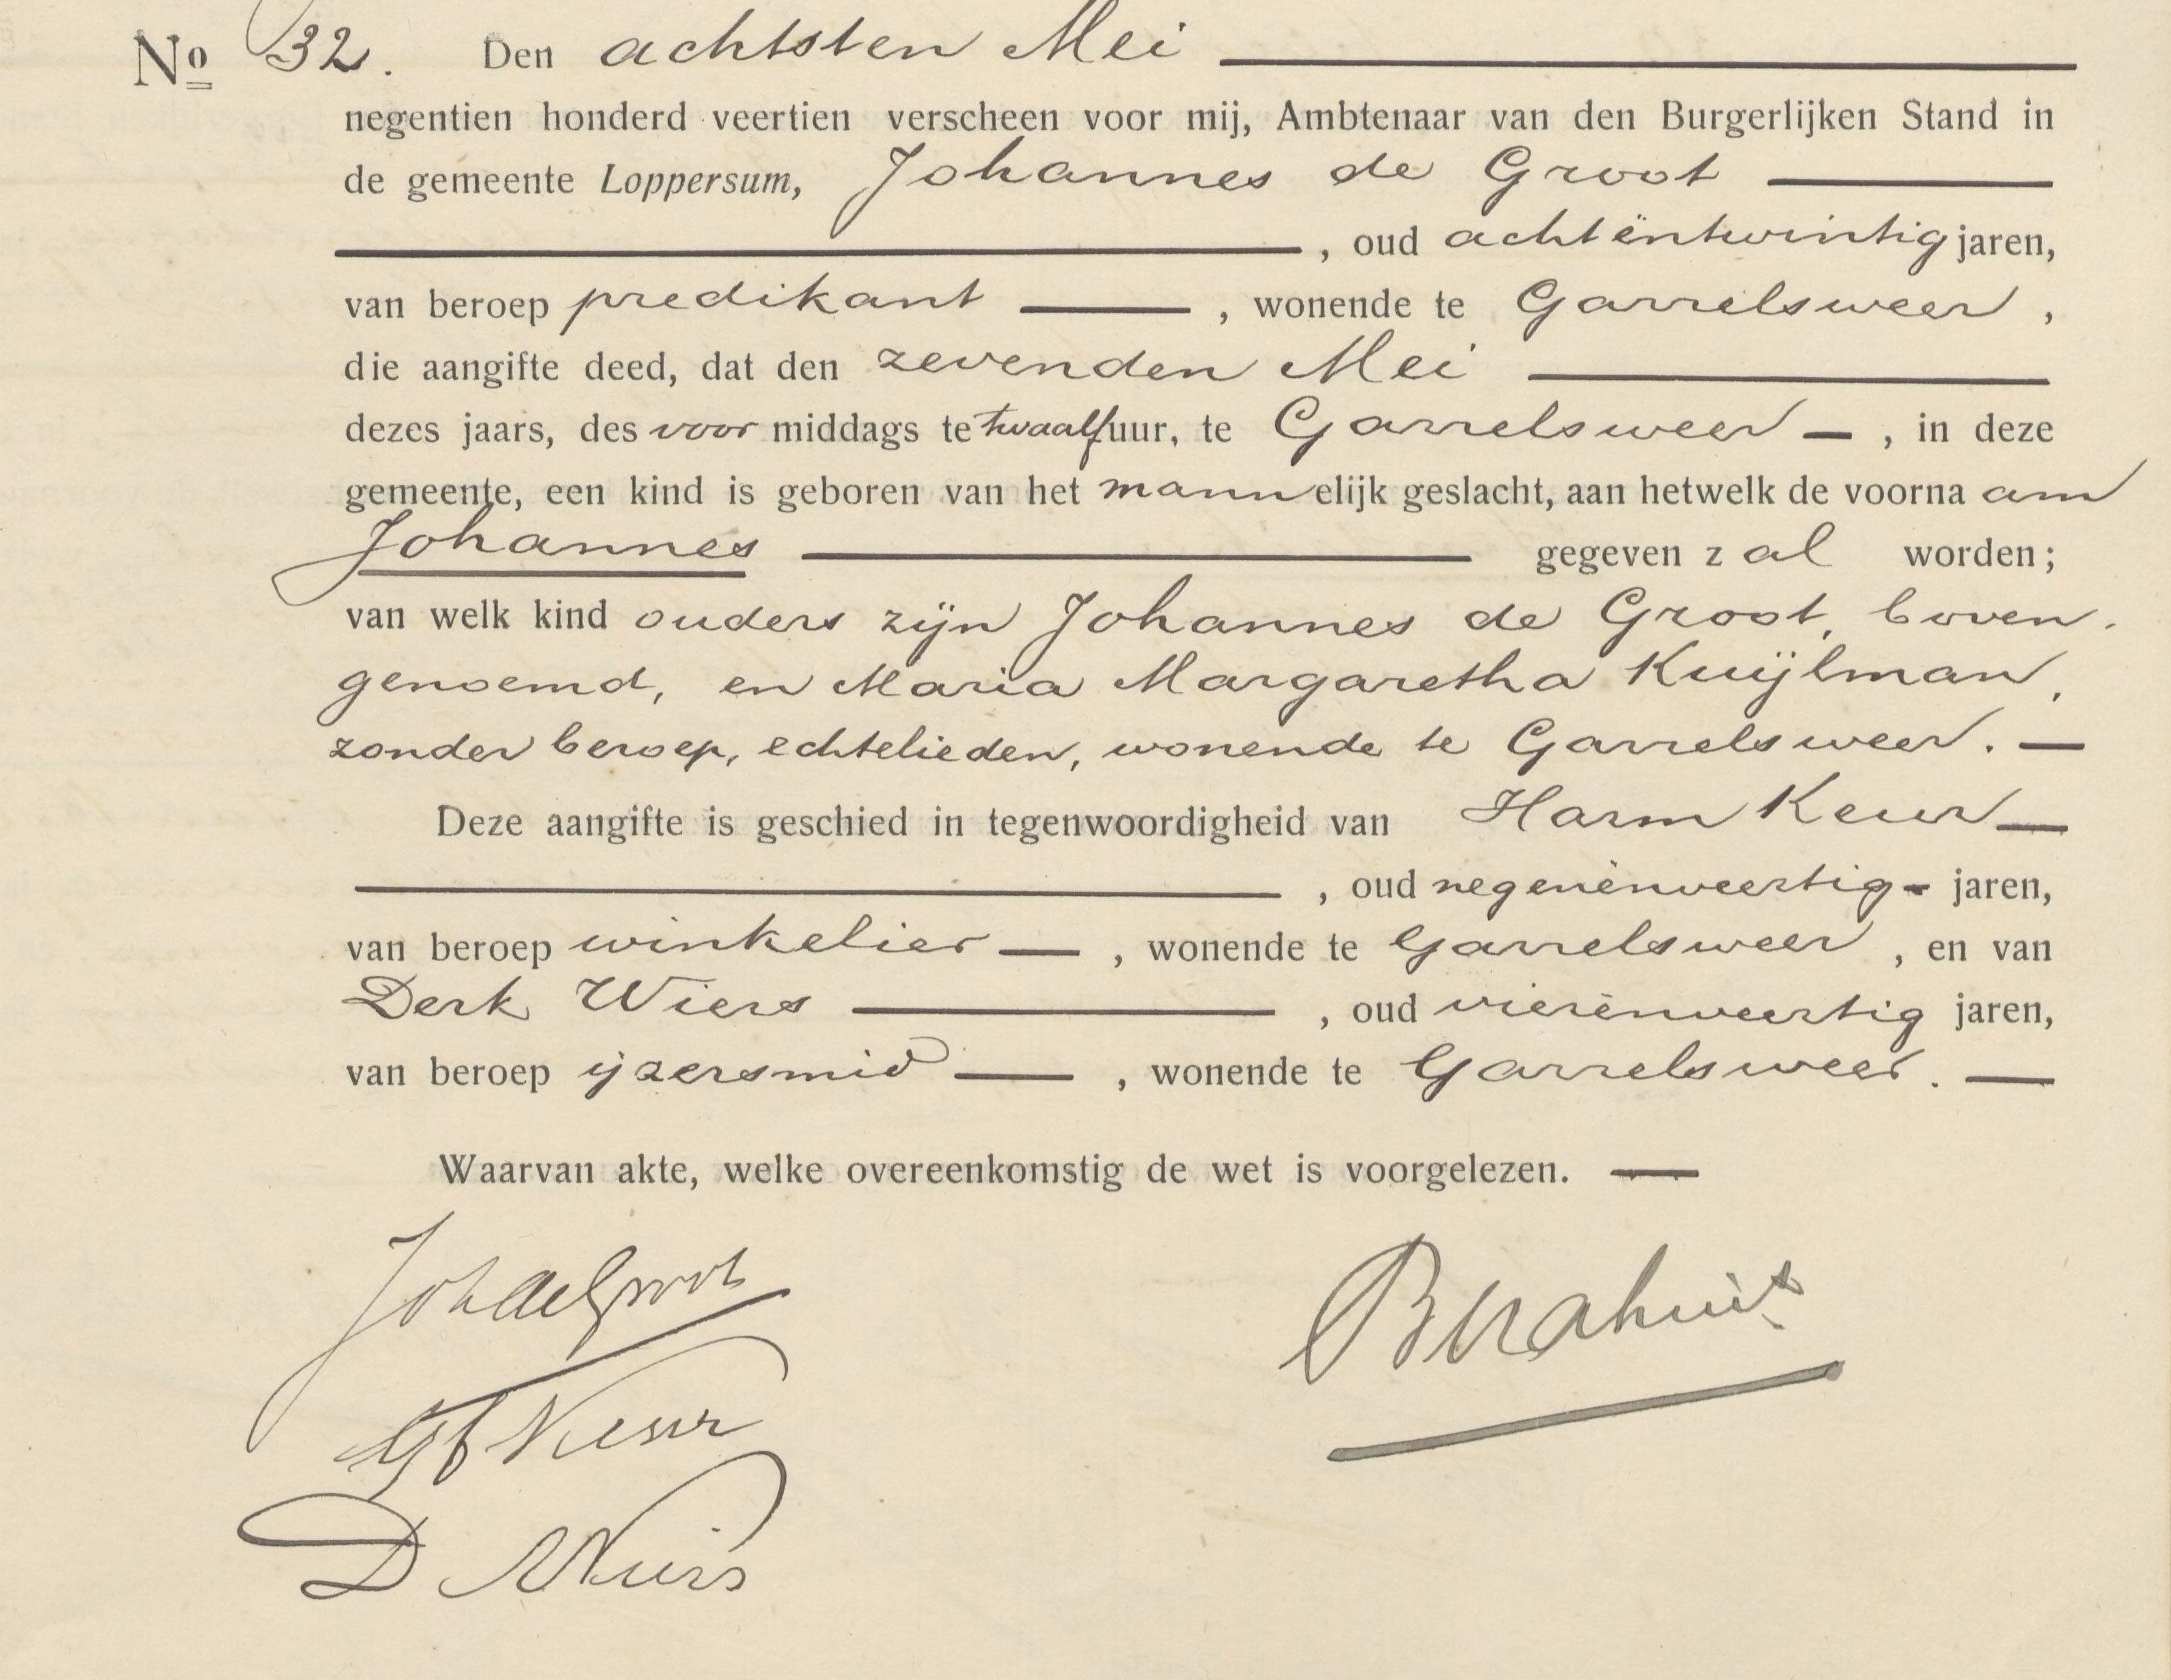 No 32. Den achtsten Mei
negentien honderd veertien verscheen voor mij, Ambtenaar van den Burgerlijken Stand in
de gemeente Loppersum, Johannes de Groot
, oud achtëntwintig jaren,
van beroep predikant , wonende te Garrelsweer ,
die aangifte deed, dat den zevenden Mei
dezes jaars, des voor middags te twaalf uur, te Garrelsweer , in deze
gemeente, een kind is geboren van het mannelijk geslacht, aan hetwelk de voornaam
Johannes gegeven zal worden;
van welk kind ouders zijn Johannes de Groot, boven-
genoemd, en Maria Margaretha Kuijlman,
zonder beroep, echtelieden, wonende te Garrelsweer.
Deze aangifte is geschied in tegenwoordigheid van Harm Keur
, oud negenënveertig jaren,
van beroep winkelier , wonende te Garrelsweer , en van
Derk Wiers , oud vierënveertig jaren,
van beroep ijzersmid , wonende te Garrelsweer.
Waarvan akte, welke overeenkomstig de wet is voorgelezen.
Joh de Groot
H Keur
D Wiers